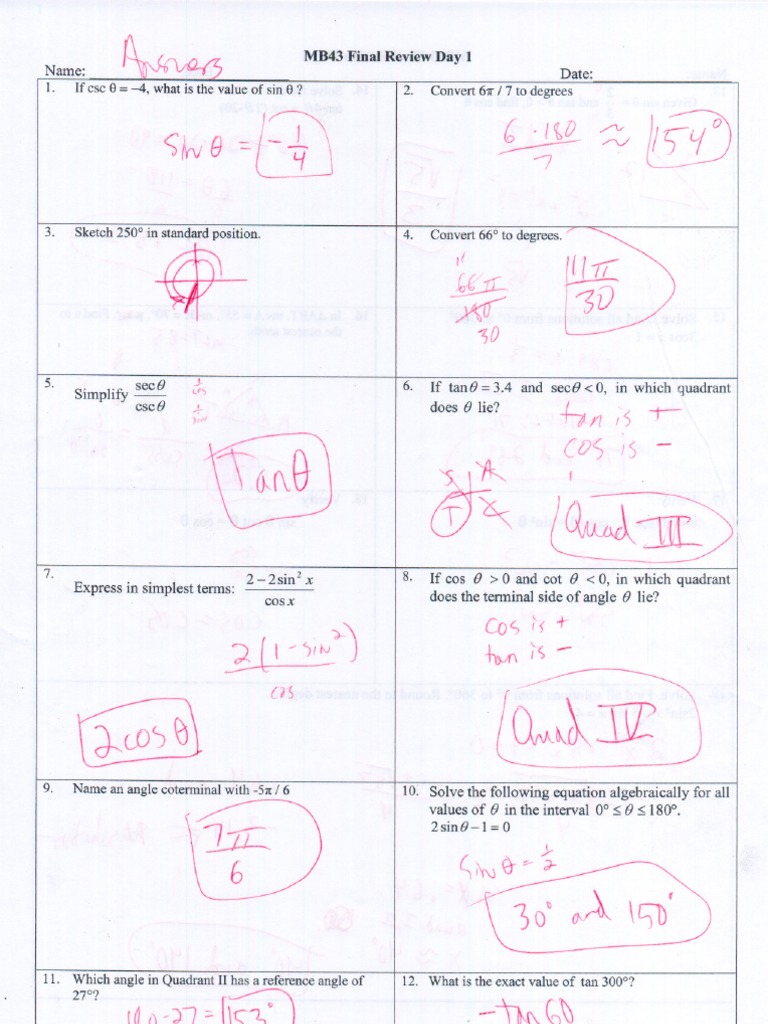 Answers
MB43 Final Review Day 1
Name: Date:
1. If csc θ = –4, what is the value of sin θ ?
sin θ = -1/4
2. Convert 6π / 7 to degrees
6·180/7 ≈ 154°
3. Sketch 250° in standard position.
4. Convert 66° to degrees.
11
66π/180
30
11π/30
5. Simplify secθ/cscθ
1/cos
1/sin
Tanθ
6. If tanθ = 3.4 and secθ < 0, in which quadrant
does θ lie?
tan is +
cos is −
S A
T C
Quad III
7. Express in simplest terms: 2 − 2sin² x / cos x
2(1 - sin²)
cos
2cosθ
8. If cos θ > 0 and cot θ < 0, in which quadrant
does the terminal side of angle θ lie?
cos is +
tan is −
Quad IV
9. Name an angle coterminal with -5π / 6
7π/6
10. Solve the following equation algebraically for all
values of θ in the interval 0° ≤ θ ≤ 180°.
2sinθ − 1 = 0
sinθ = 1/2
30° and 150°
11. Which angle in Quadrant II has a reference angle of
27°?
180-27 = 153°
12. What is the exact value of tan 300°?
-tan60